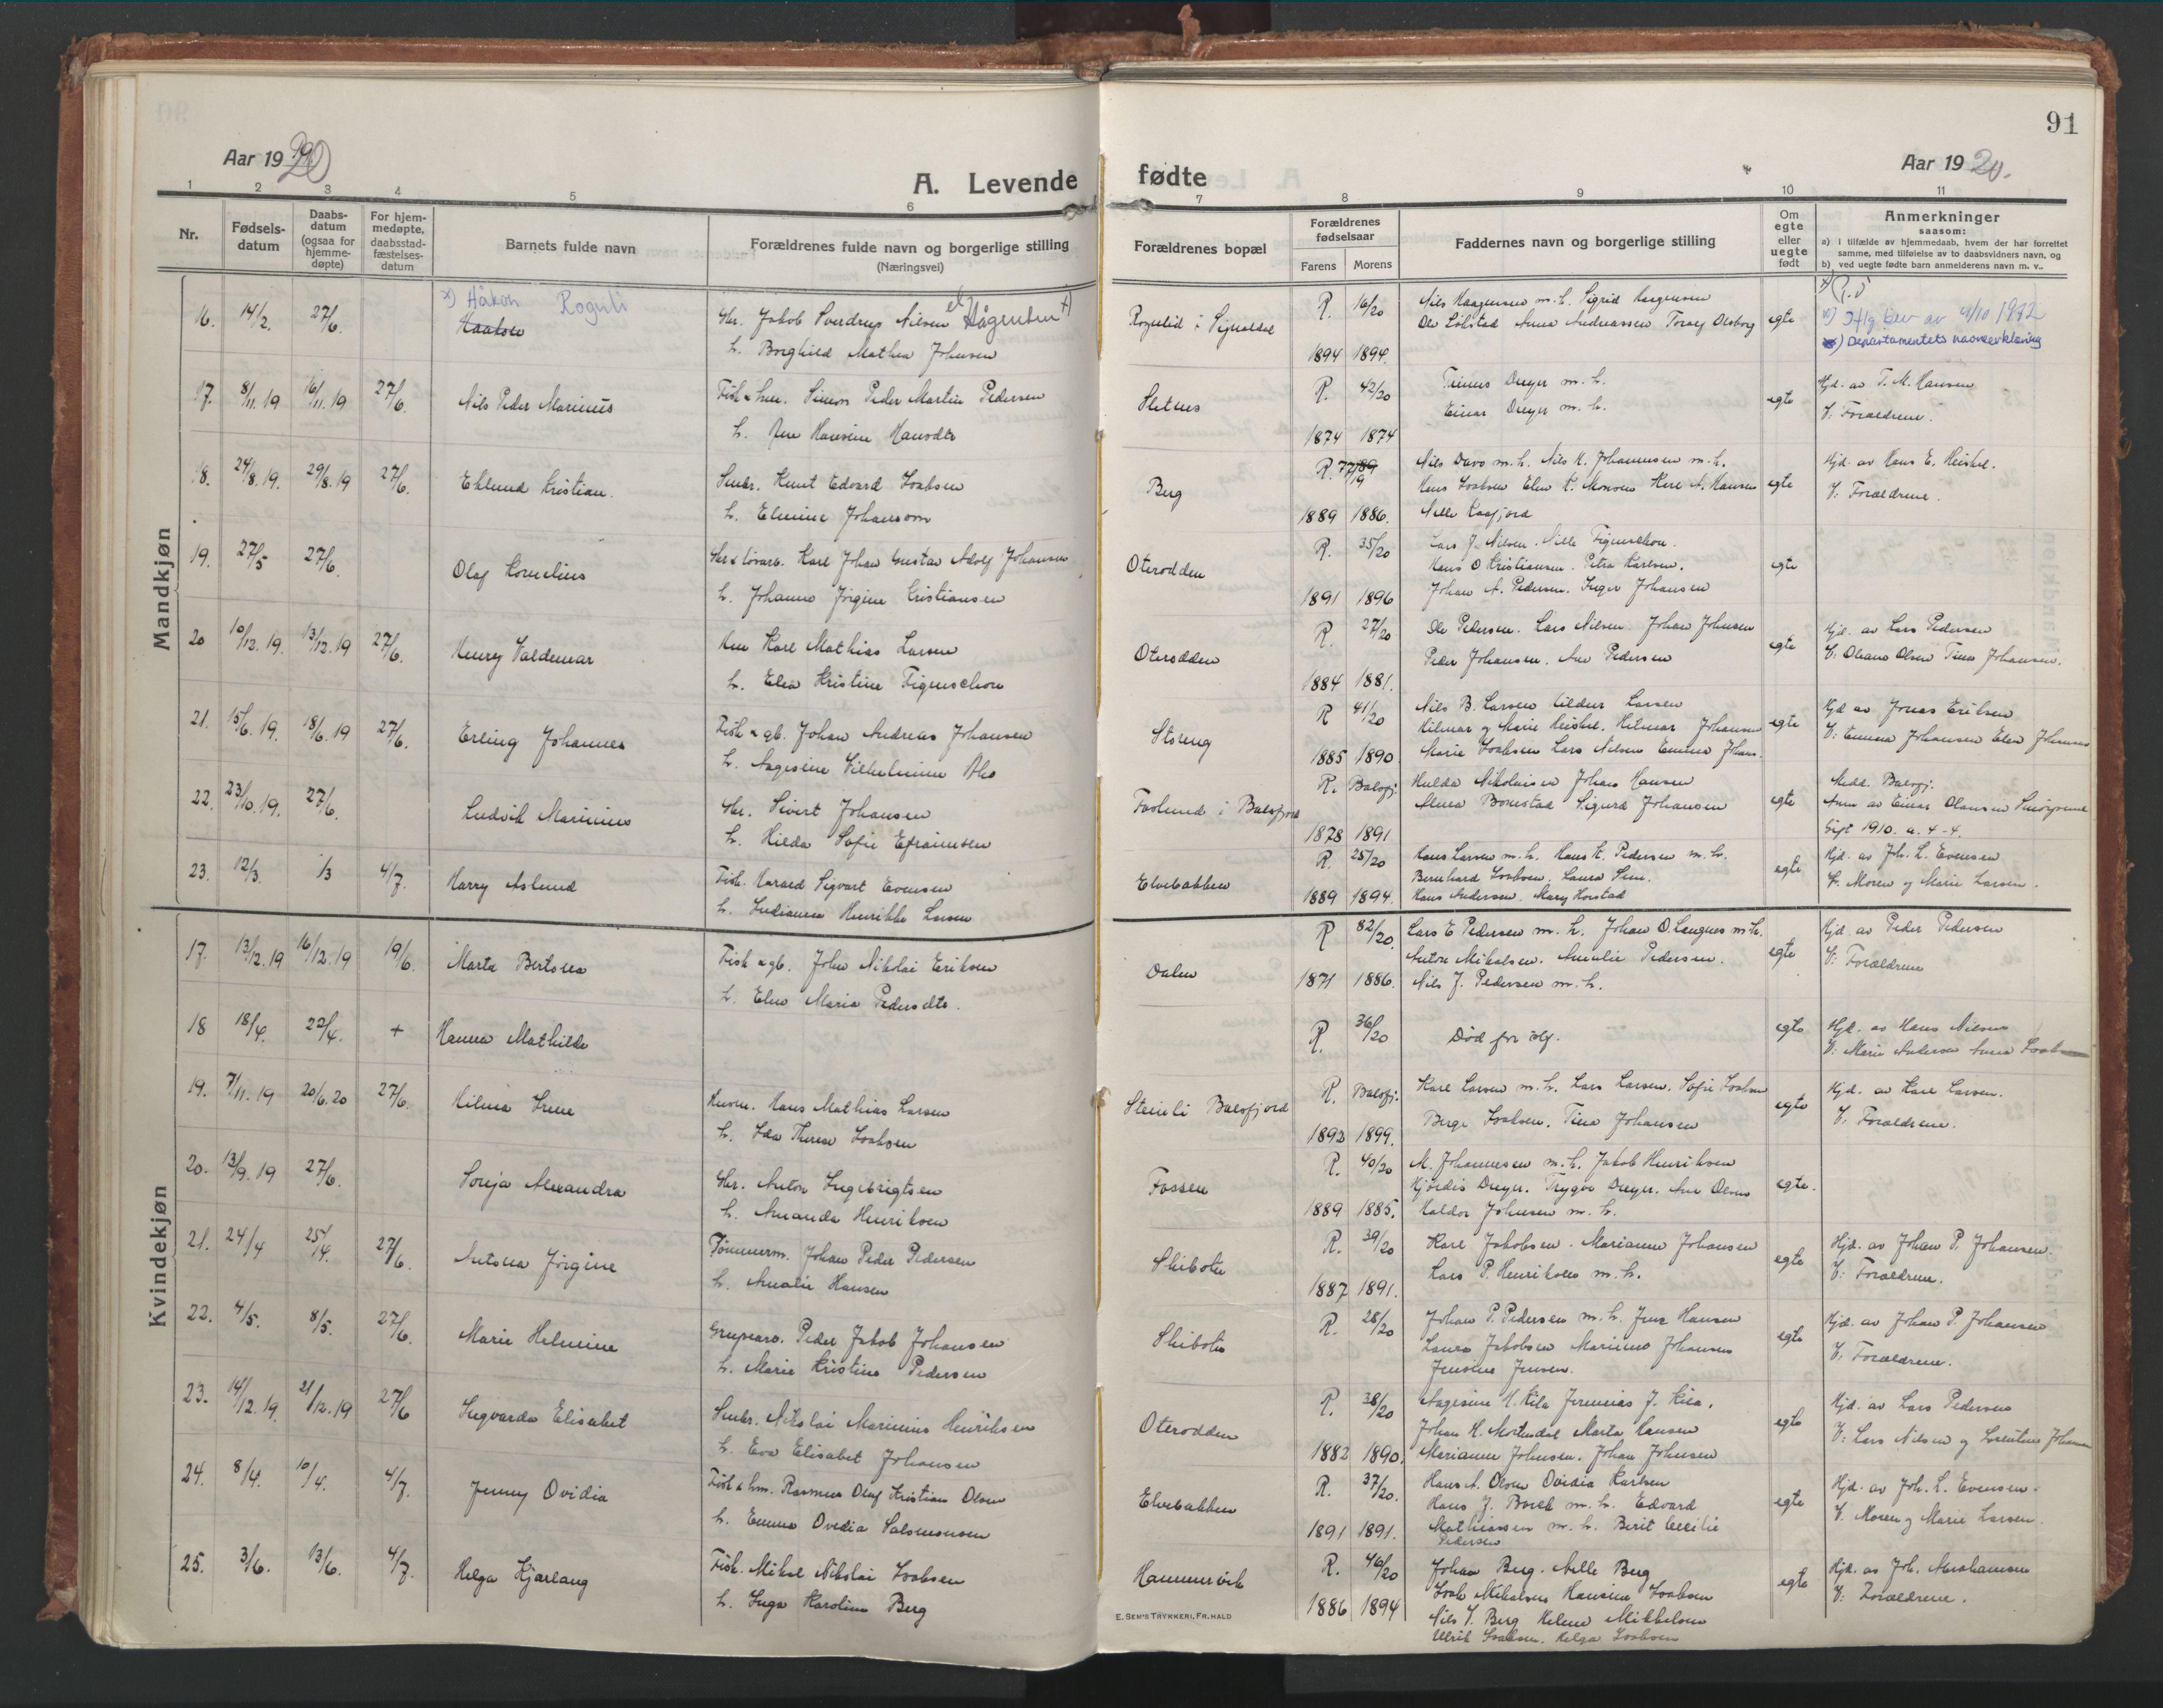 91
Aar 1920
A. Levende
fødte
Aar 1920.
1 2 3 4 5 6 7 8 9 10 11
Nr.
Fødsels-
datum
Daabs-
datum
(ogsaa for
hjemme-
døpte)
For hjem-
medøpte,
daabsstad-
fæstelses-
datum
Barnets fulde navn
Forældrenes fulde navn og borgerlige stilling
(Næringsvei)
Forældrenes bopæl
Forældrenes
fødselsaar
Farens Morens
Faddernes navn og borgerlige stilling
Om
egte
eller
uegte
født
Anmerkninger
saasom:
a) i tilfælde av hjemmedaab, hvem der har forrettet
samme, med tilføielse av to daabsvidners navn, og
b) ved uegte fødte barn anmelderens navn m. v..
Mandkjøn
x) Håkon Roguli
16. 14/2. 27/6. Haakon
Gbr. Jakob Sverdrup Nilsen Hågensen x)
h. Borghild Mathea Johnsen
Rognlid i Signaldal R. 16/20
1894 1894.
Nils Haagensen m. h. Sigrid Haagensen
Ole Lilstad Anna Andreassen Toralf Olsborg
egte
av 4/10 1932
Departamentets navneerklæring
17. 8/11.19 16/11.19 27/6. Nils Peder Marinus
Fisk & hm. Simon Peder Martin Pedersen
h. Ane Hansine Hansdtr
Sletnes R. 42/20
1874 1874
Trinus Dreyer m. h.
Einar Dreyer m. h.
egte
Hjd. av T. M. Hansen
V: Forældrene.
18. 24/8.19. 29/8.19 27/6. Eklund Kristian.
Smbr. Knut Edvard Isaksen
h. Elmine Johansom
Berg R. 77/19
1889 1886.
Nils Davo m. h. Nils H. Johannesen m. h.
Hans Isaksen Elen K. Monsen Karl A. Hansen
Nelle Kaafjord
egte
Hjd. av Hans E. Heiskel.
V: Forældrene.
19. 27/5 27/6. Olaf Kornelius
Gbr & tovarb. Karl Johan Gustav Adolf Johansen
h. Johanne Jørgine Kristiansen
Oterodden R. 35/20
1891 1896
Lars J. Nilsen. Nille Figenschou.
Hans O Kristiansen. Petra Karlsen.
Johan A. Pedersen. Inger Johansen
egte
20 10/12.19. 13/12.19 27/6. Henry Valdemar
Hm Karl Mathias Larsen
h. Elea Kristine Figenschou
Oterodden R. 27/20
1884 1881.
Ole Pedersen. Lars Nilsen. Johan Johnsen
Peder Johansen. Ane Pedersen
egte
Hjd. av Lars Pedersen
V: Oleana Olsen Tina Johansen.
21. 15/6.19. 18/6.19 27/6. Erling Johannes
Fisk & gb. Johan Andreas Johansen
h. Aagesine Vilhelmine
Storeng R 41/20
1885 1890
Nils B. Larsen Lildur Larsen
Hilmar & Marie Heiskel. Hilmar Johansen
Marie Isaksen Lars Nilsen Emma Johans.
egte
Hjd. av Jonas Eriksen
V: Emma Johansen Elen Johansen
22. 23/10.19. 27/6. Ludvik Marinius
Gbr. Sivert Johansen
h. Hilda Sofie Efraimsen
Taalund i Balsfjord R. Balsfj.
1878 1891
Hulda Nikolaisen Johan Hansen
Alma Bomstad Sigurd Johansen
egte
Medd. Balsfj.
Anm av Einar Olaussen
Gift 1910. a. 4-4.
23. 12/3. 1/3 4/7. Harry Aslund
Fisk. Harald Sigvart Evensen
h. Indianna Henrikke Larsen
Elvebakken R. 25/20
1889 1894.
Hans Larsen m. h. Hans K. Pedersen m. h.
Bernhard Isaksen. Laura
Hans Andersen. Mary Horstad
egte
Hjd. av Joh. L. Evensen
V. Moren & Marie Larsen.
Kvindekjøn
17. 13/12.19 16/12.19 19/6. Marta Bertsea
Fisk & gb. John Nikolai Eriksen
h. Elen Maria Pedersdtr.
Dalen R 82/20.
1871 1886.
Lars E Pedersen m. h. Johan O. Langnes m. h.
Anton Mikalsen. Amalie Pedersen.
Nils J. Pedersen m. h.
egte
Hjd. av Peder Pedersen
V: Forældrene
18 18/4. 22/4. + Hanna Mathilde
R. 36/20
Død før
egte
Hjd. av Hans Nilsen
V: Marie Andersen Anna Isaksen
19. 7/11.19 20/6.20 27/6. Hilma Irene
Hans Mathias Larsen
h. Ida Therese Isaksen
Steinli Balsfjord R. Balsfj.
1892 1899.
Karl Larsen m. h. Lars Larsen. Sofie Isaksen
Berge Isaksen. Tina Johansen
egte
Hjd. av Karl Larsen.
V. Forældrene.
20. 13/9.19 27/6. Sonja Alexandra
Gbr. Anton Ingebrigtsen
h. Amanda Henriksen
Fossen R. 40/20
1889 1885.
M. Johannesen m. h. Jakob Henriksen
Hjørdis Dreyer. Trygve Dreyer. Ane Olsen
Haldor Johnsen m. h.
egte.
21. 24/4 25/4. 27/6. Antona Jørgine
Tømmerm. Johan Peder Pedersen
h. Amalie Hansen
Skibotn R. 39/20
1887 1891.
Karl Jakobsen. Marianne Johansen
Lars P. Henriksen m. h.
egte
Hjd. av Johan P. Johansen.
V: Forældrene.
22. 4/5. 8/5. 27/6. Marie Helmine
Grupearb. Peder Jakob Johansen
h. Marie Kristine Pedersen
Skibotn R. 28/20
Johan P. Pedersen m. h. Jens Hansen
Laura Jakobsen Marinus Johansen
Jensine Jensen.
egte
Hjd. av Johan P. Johansen
V. Forældrene.
23. 14/12.19. 21/12.19 27/6 Ingvarda Elisabet
Smbr. Nikolai Marinius Henriksen
h. Eva Elisabet Johansen
Oterodden R. 38/20
1882 1890.
Aagesine H. Kila Jeremias J. Kila.
Johan H. Mortendal Marta Hansen
Marianne Johnsen. Johan Johnsen
egte
Hjd. av Lars Pedersen
V: Lars Nilsen & Lorentine Johansen
24. 8/4. 10/4. 4/7. Jenny Ovidia
Fisk & hm. Rasmus Olaf Kristian Olsen
h. Emma Ovedia Salomonsen
Elvebakken R. 37/20.
1891 1891.
Hans A. Olsen Ovidia Karlsen
Hans J. Bosek m. h. Edvard
Mathiassen m. h. Berit Cecilie
Pedersen
egte
Hjd. av Joh. L. Evensen.
V. Moren & Marie Larsen.
25. 3/6. 13/6. 4/7. Helga Kjærlaug
Fisk. Mikal Nikolai Isaksen
h. Inga Karoline Berg
Hammervik R. 46/20
1886 1894
Johan Berg. Nelle Berg
Isak Mikalsen Hansine Isaksen
Nils I. Berg Helene Mikkelsen
Ulrik Isaksen. Helga Isaksen
egte
Hjd. av Joh. Abrahamsen
V: Forældrene.
E. SEM'S TRYKKERI, FR.HALD